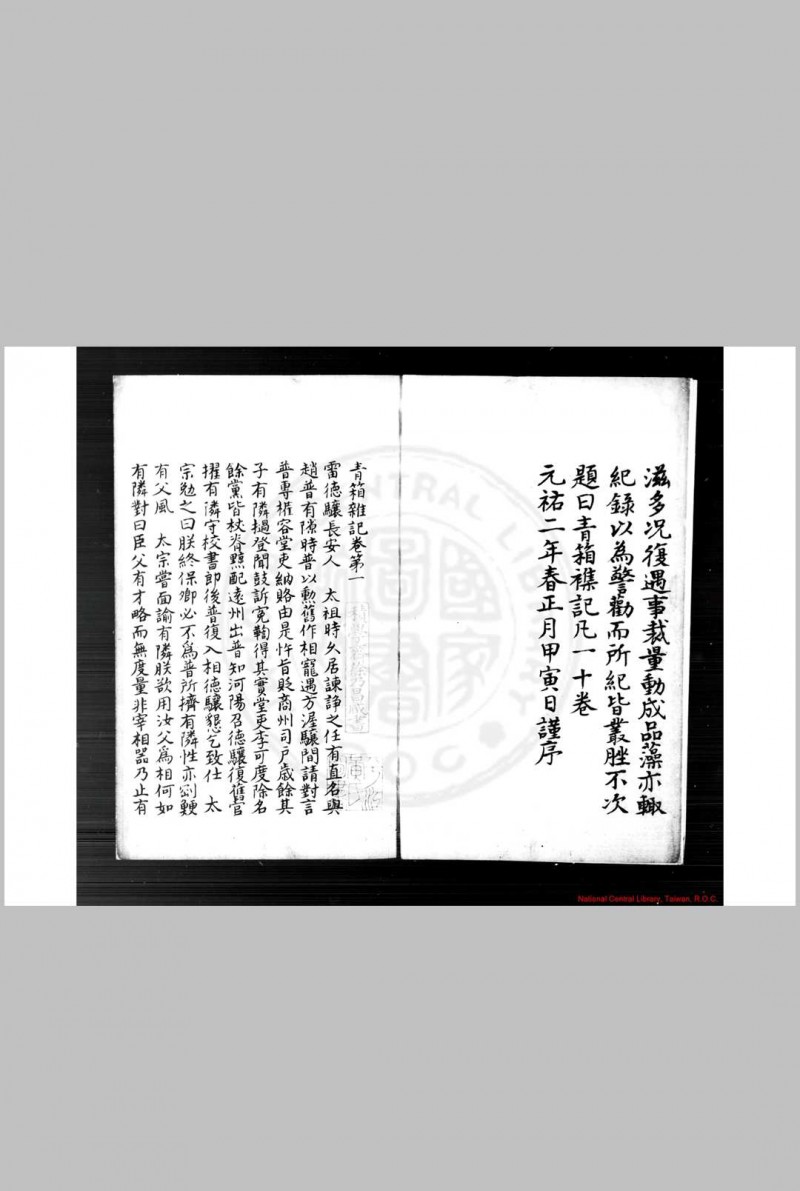 滋多况復遇事裁量動成品藻亦輙
紀錄以為警勸而所紀皆叢脞不次
題曰青箱襍記凡一十卷
元祐二年春正月甲寅日謹序
青箱雜記卷第一
雷德驤長安人　太祖時久居諫諍之任有直名與
趙普有隙時普以勳舊作相寵遇方渥驤間請對言
普專權容堂吏納賂由是忤旨貶商州司户歲餘其
子有隣撾登聞鼓訴寃鞫得其實堂吏李可度除名
餘黨皆杖脊黥配遠州出普知河陽召德驤復舊官
擢有隣守校書郎後普復入相德驤懇乞致仕　太
宗勉之曰朕終保卿必不爲普所擠有隣性亦剛鯁
有父風　太宗嘗面諭有隣朕欲用汝父爲相何如
有隣對曰臣父有才略而無度量非宰相器乃止有
National Central Library, Taiwan, R.O.C.